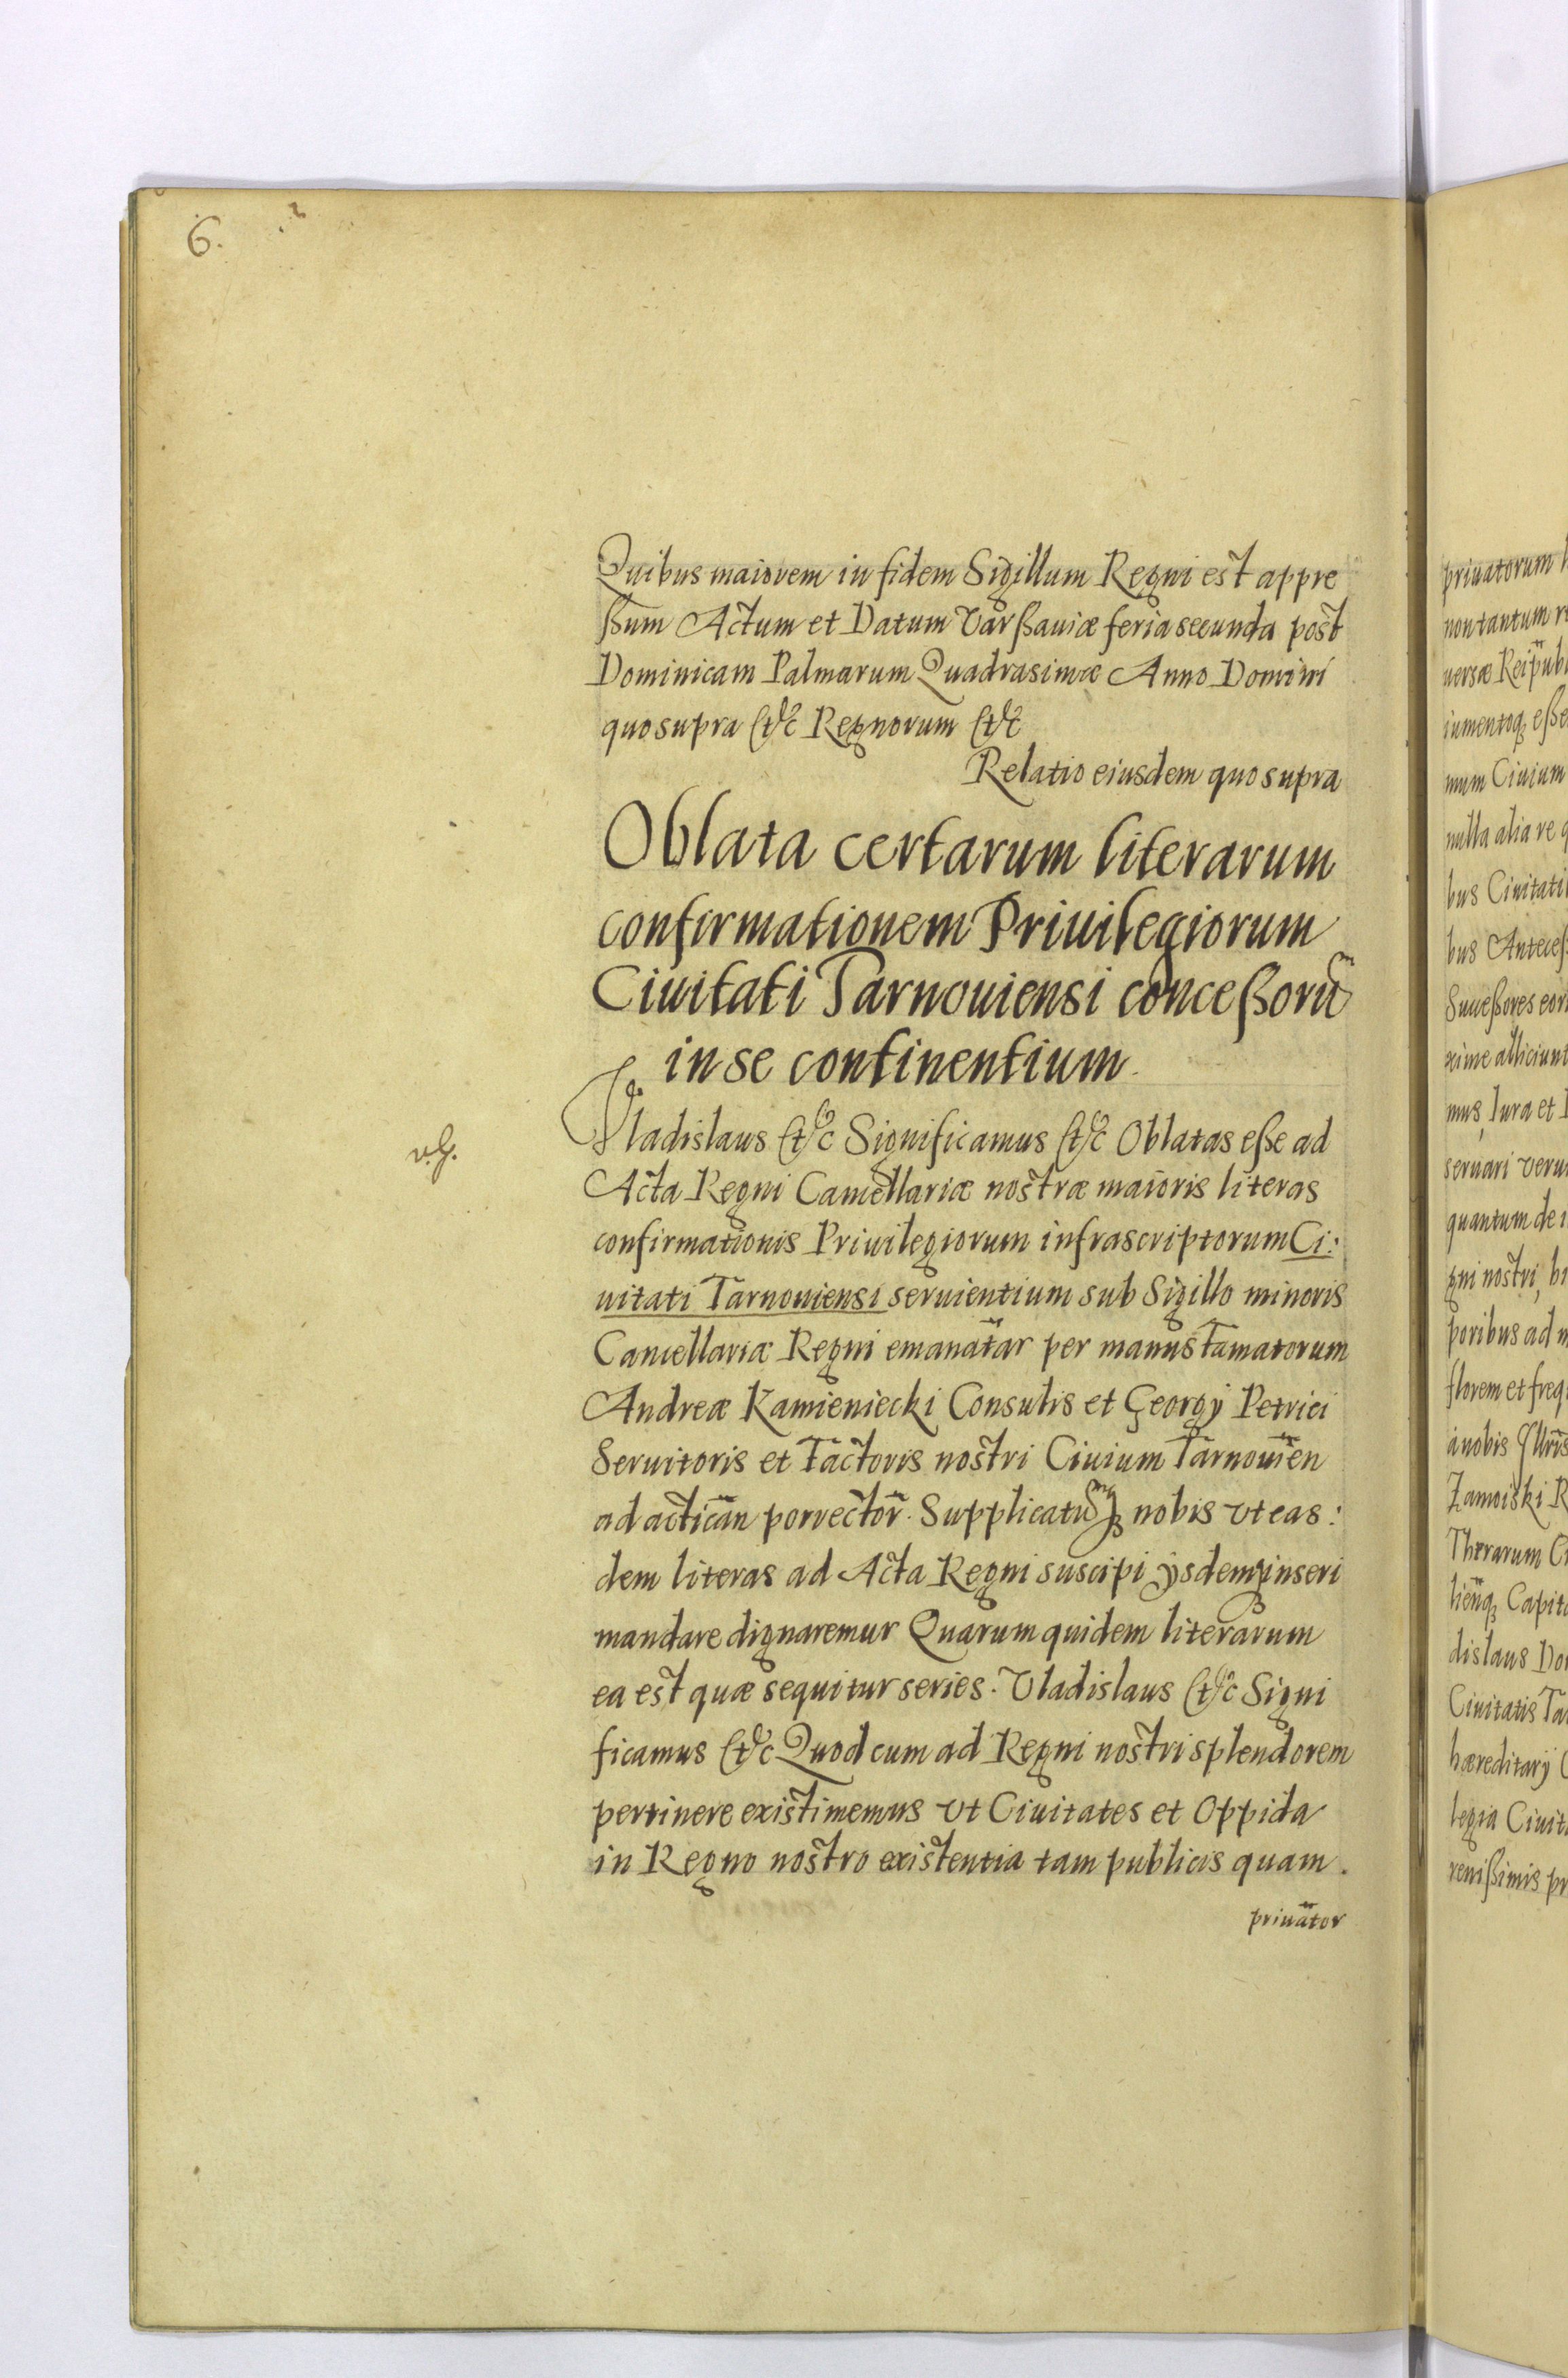 6.
Quibus maiorem in fidem Sigillum Regni est appre
ßum Actum et Datum Varßauiæ feria secunda post
Dominicam Palmarum Quadrasimæ Anno Domini
quo supra &c Regnorum &c
Relatio eiusdem quo supra
Oblata certarum literarum
confirmationem Priuilegiorum
Ciuitati Tarnouiensi conceßorũ
in se continentium
Vladislaus &c Significamus &c Oblatas eße ad
Acta Regni Cancellariæ nostræ maioris literas
confirmationis Priuilegiorum infrascriptorum Ci:
uitati Tarnouiensi seruientium sub Sigillo minoris
Cancellariæ Regni emanatar per manus famatorum
Andreæ Kamieniecki Consulis et Georgÿ Petrici
Seruitoris et Factoris nostri Ciuium Tarnouien
ad actican porrector. Supplicatũqꝫ nobis vt eas:
dem literas ad Acta Regni suscipi ÿsdemqꝫ inseri
mandare dignaremur Quarum quidem literarum
ea est quæ sequitur series. Vladislaus &c Signi
ficamus &c Quod cum ad Regni nostri splendorem
pertinere existimemus vt Ciuitates et Oppida
in Regno nostro existentia tam publicis quam.
priuator
priuatorum
non tantum
uersæ Reipub
iumentoqꝫ eße
mum Ciuium
nulla alia re
bus Ciuitati
bus Anteceß
Succeßores eor
xime alliciunt
mus, Iura et
seruari veru
quantum de
gni nostri, hi
poribus ad
florem et freq
a nobis Illris
Zamoiski R
Therarum C
lienqꝫ Capit
dislaus Do
Ciuitatis Ta
hæreditarÿ
legia Ciuit
renißimis pr